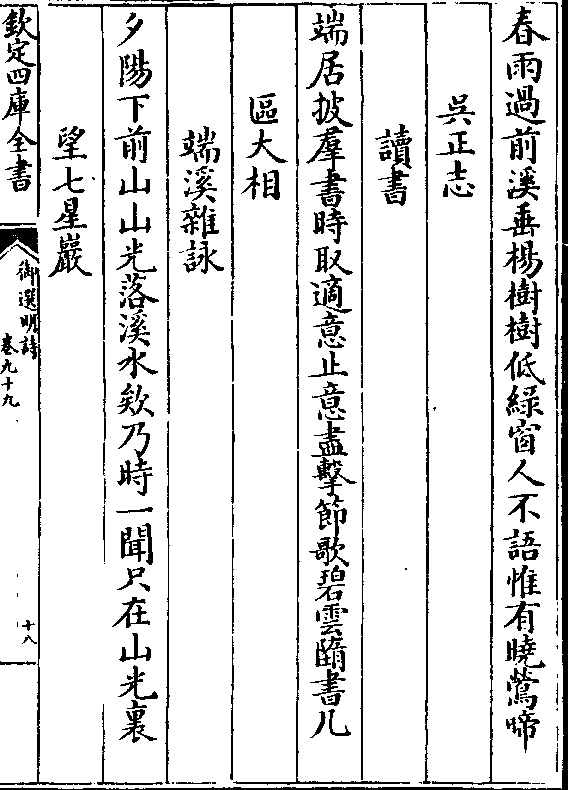 春雨過前溪垂楊樹樹低綠窗人不語惟有曉鶯啼
吳正志
讀書
端居披羣書時取適意止意盡擊節歌碧雲隨書几
區大相
端溪雜詠
夕陽下前山山光落溪水欸乃時一聞只在山光裏
望七星巖
欽定四庫全書
御選明詩
卷九十九
十八